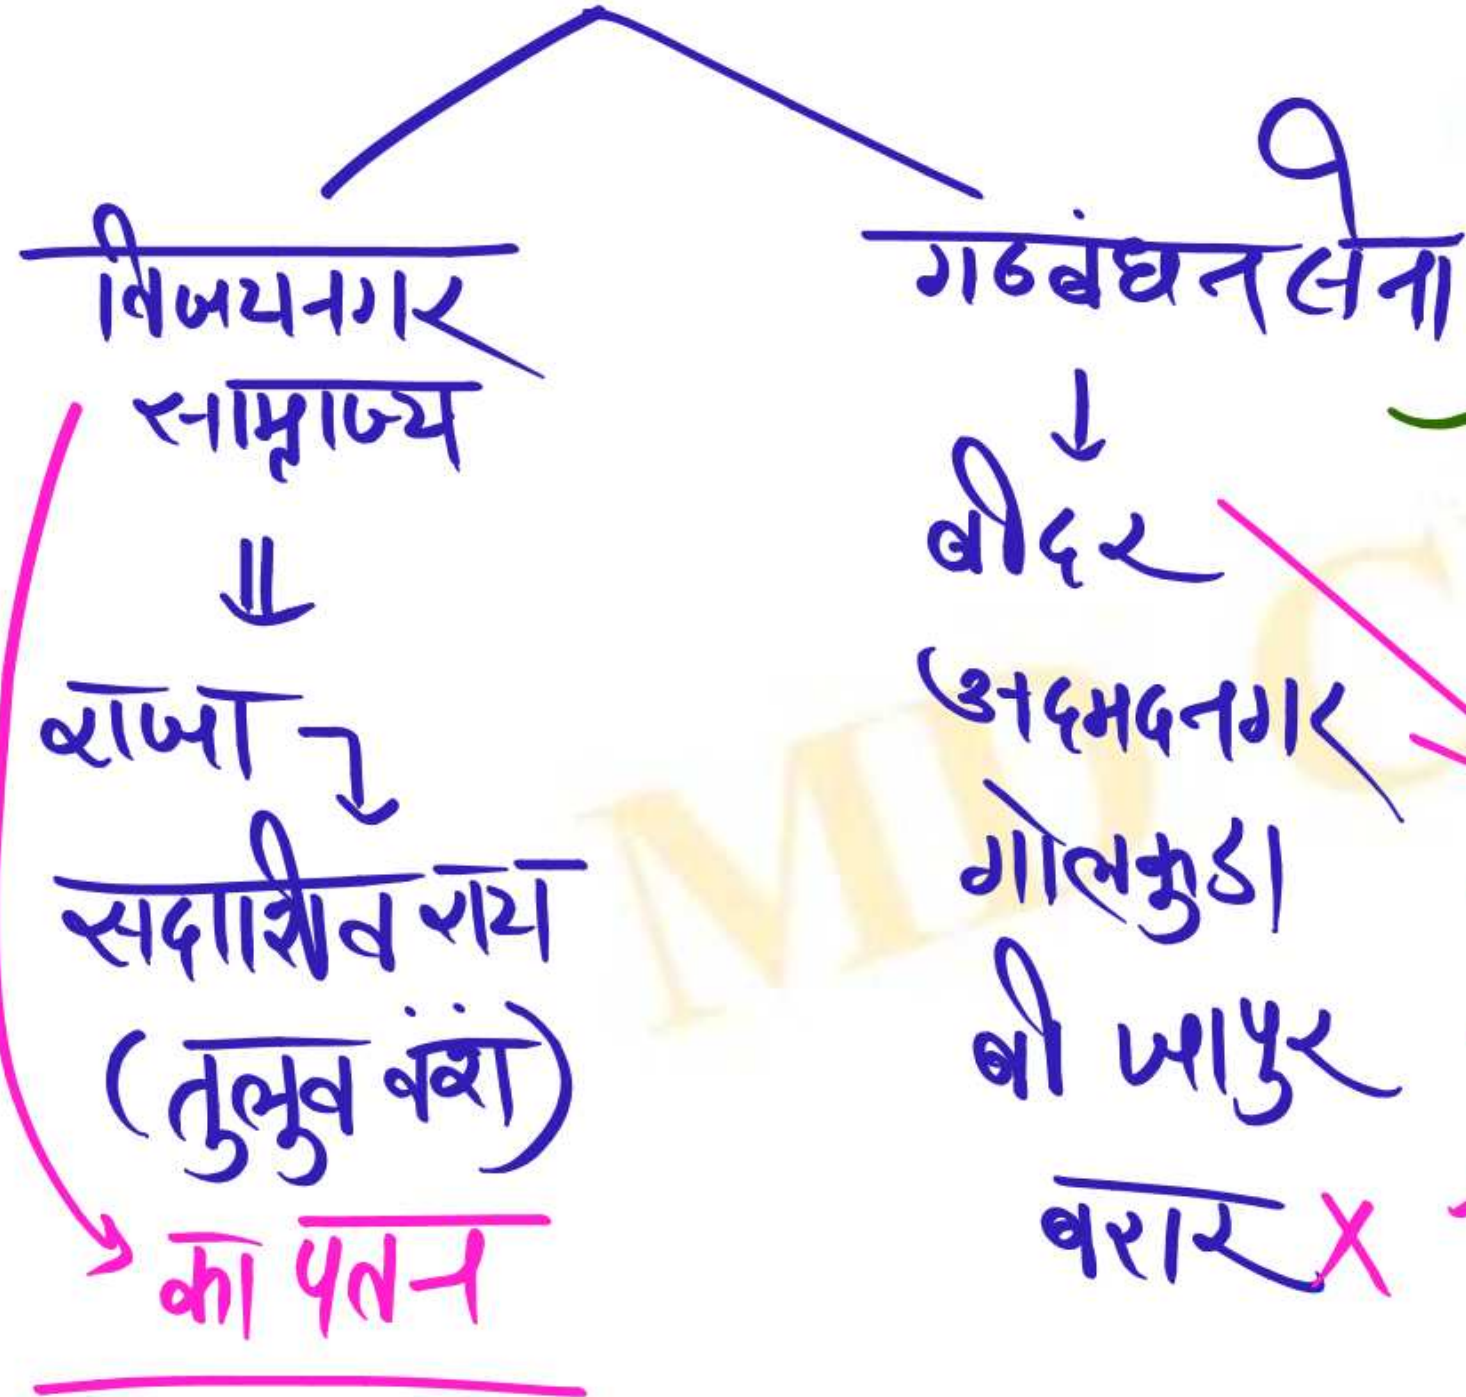 विजयनगर
साम्राज्य
राजा
सदाशिव राय
(तुलुव वंशं)
का पतन
गठबंधन सेना
बीदर
अदमदनगर
गोलकुडा
बीजापुर
बरार X
MD C